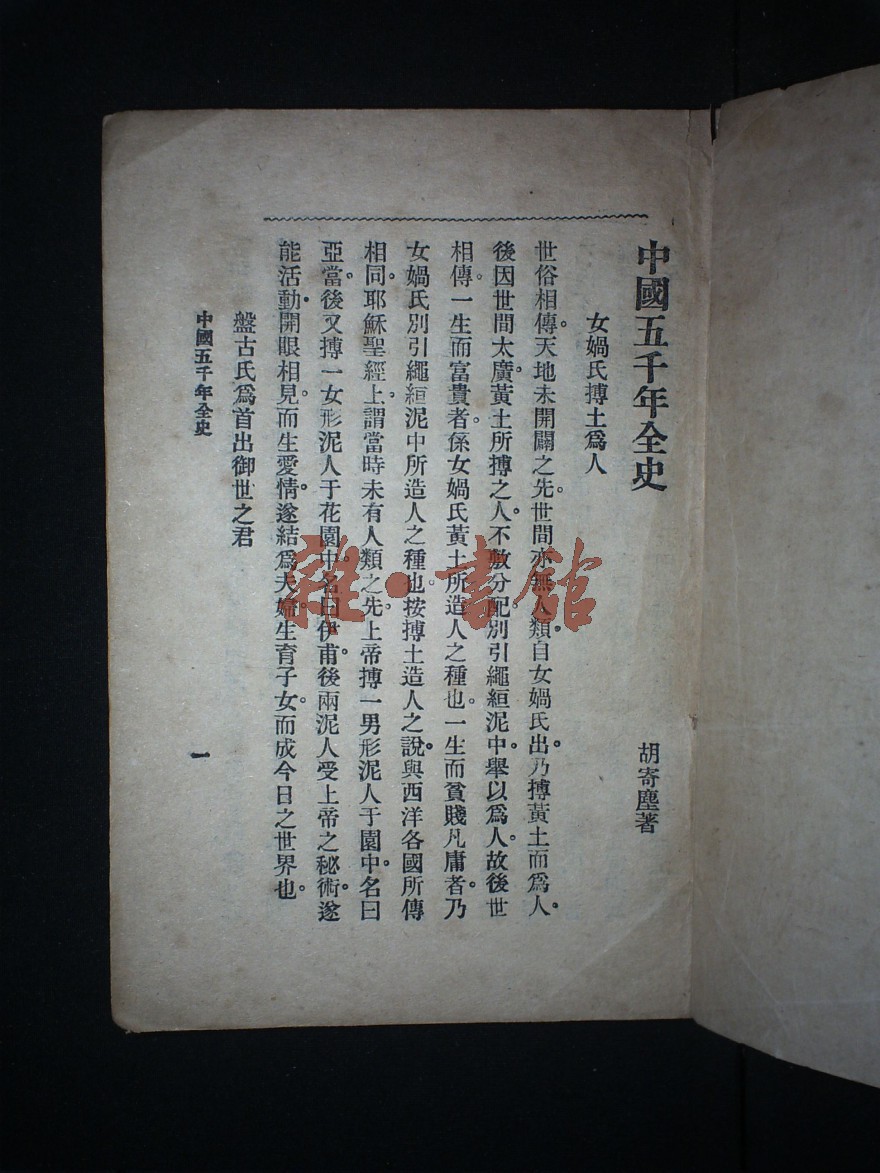 中國五千年全史
胡寄塵著
女媧氏摶土爲人
世俗相傳。天地未開闢之先。世間亦無人類。自女媧氏出。乃摶黃土而爲人。
後因世間太廣。黃土所摶之人。不敷分配。別引繩絙泥中。舉以爲人。故後世
相傳。一生而富貴者。係女媧氏黃土所造人之種也。一生而貧賤凡庸者。乃
女媧氏別引繩絙泥中所造人之種也。按摶土造人之說。與西洋各國所傳
相同。耶穌聖經上。謂當時未有人類之先。上帝摶一男形泥人于園中。名曰
亞當。後又摶一女形泥人于花園中。名曰伊甫。後兩泥人受上帝之秘術。遂
能活動。開眼相見。而生愛情。遂結爲夫婦。生育子女。而成今日之世界也。
盤古氏爲首出御世之君
中國五千年全史
一
雜·書館